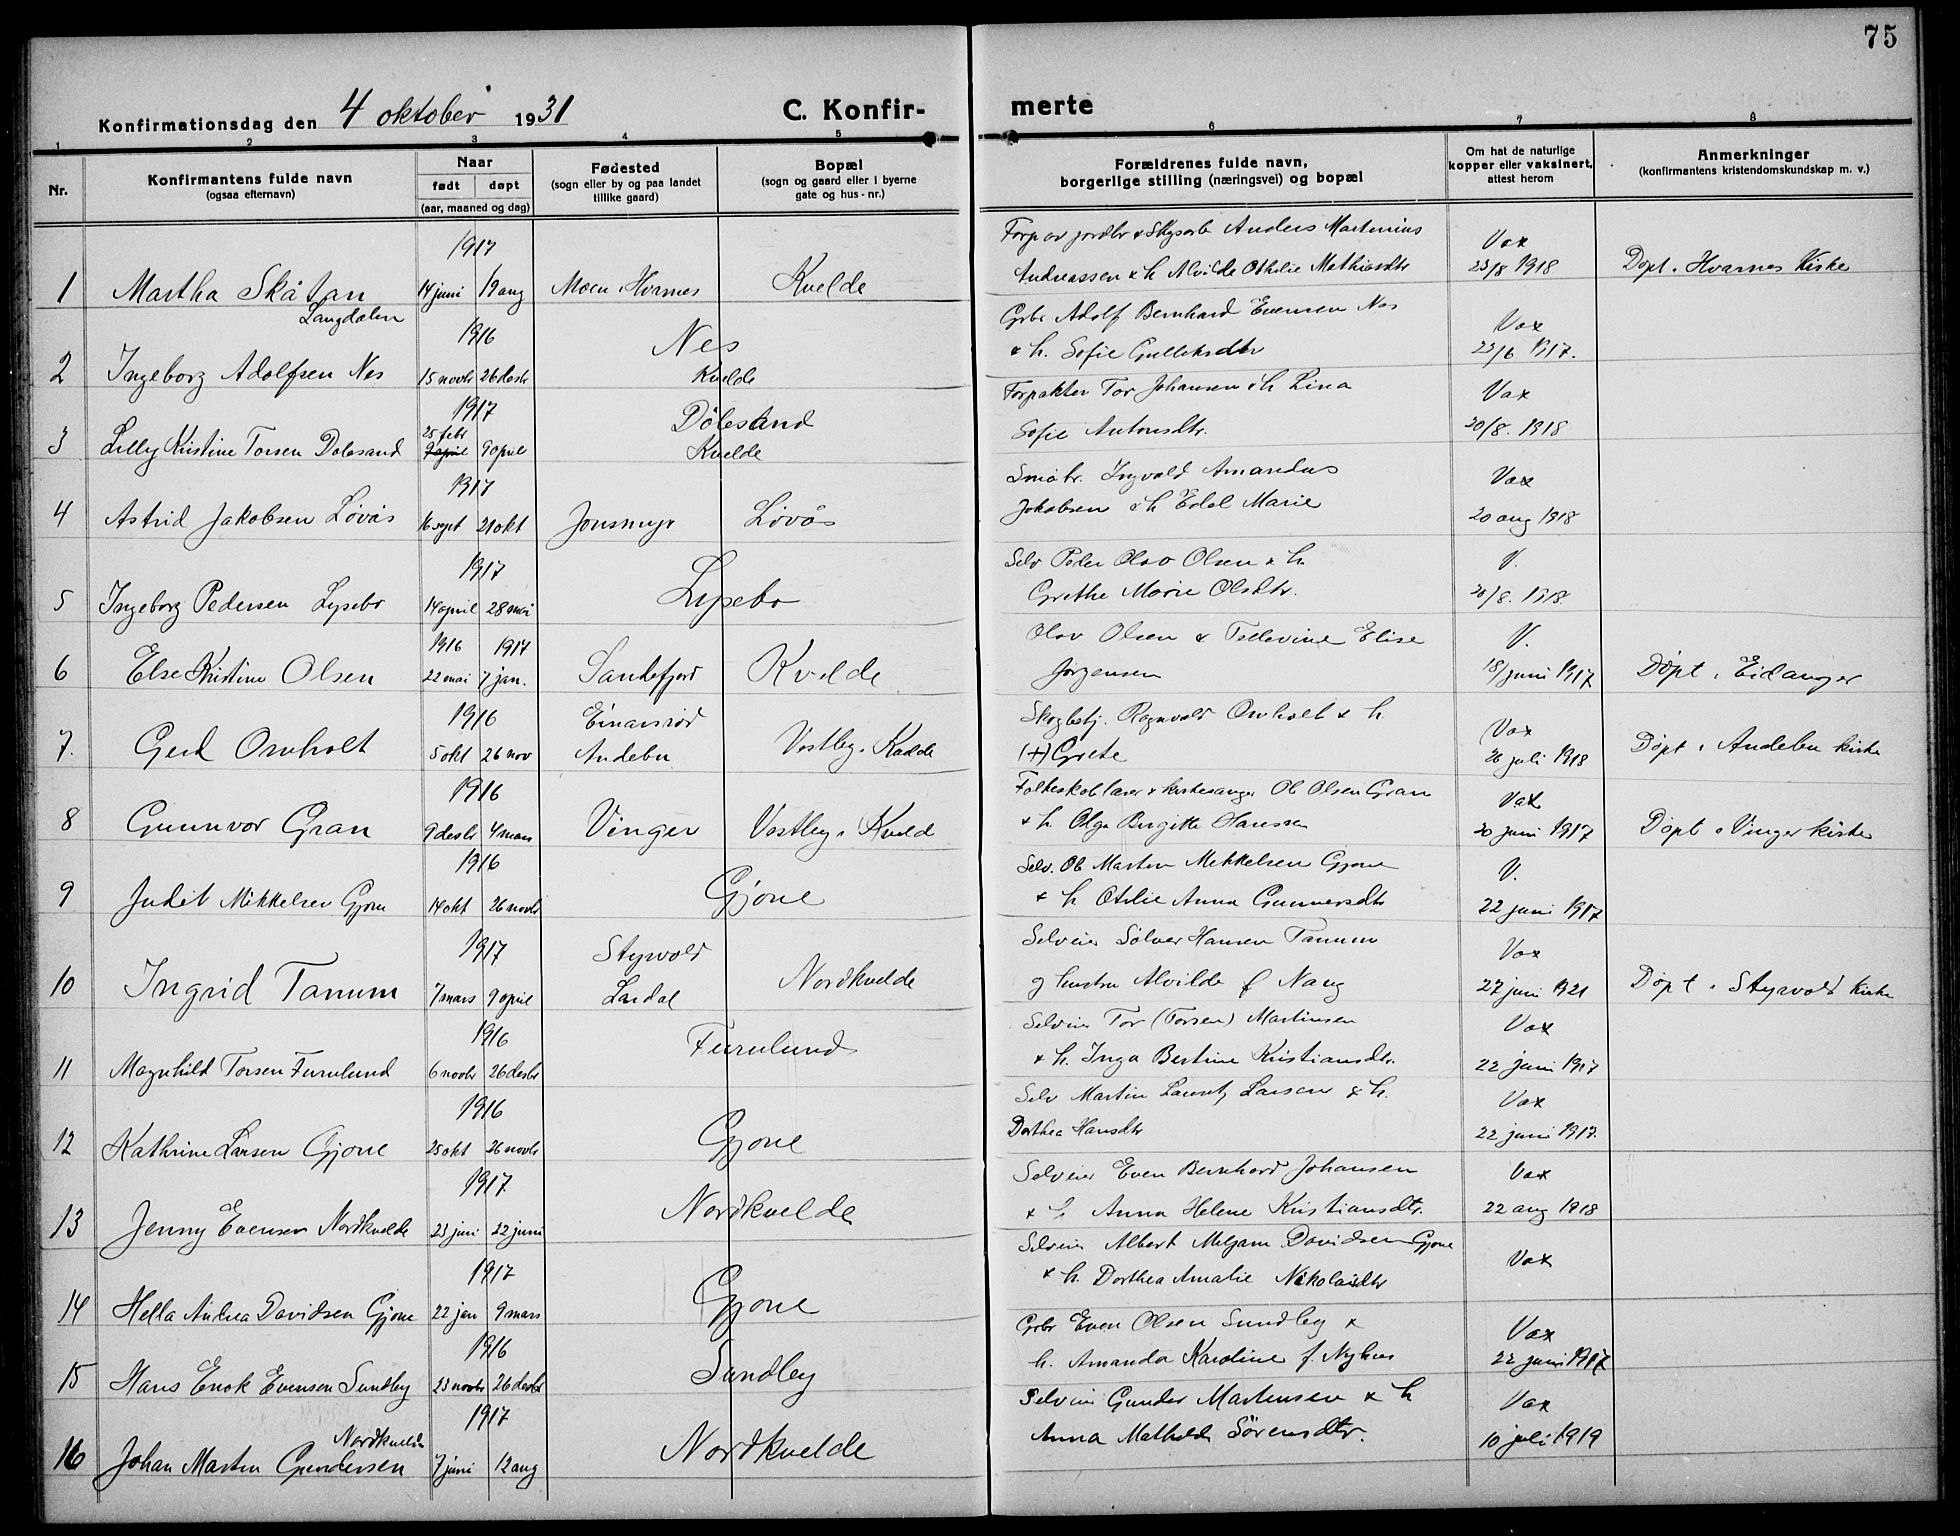 75
Konfirmationsdag den 4 oktober 1931 C. Konfir- merte
1 2 3 4 5 6 7 8
Nr.
Konfirmantens fulde navn
(ogsaa efternavn)
Naar
født døpt
(aar, maaned og dag)
Fødested
(sogn eller by og paa landet
tillike gaard)
Bopæl
(sogn og gaard eller i byerne
gate og hus-nr.)
Forældrenes fulde navn,
borgerlige stilling (næringsvei) og bopæl
Om hat de naturlige
kopper eller vaksinert,
attest herom
Anmerkninger
(konfirmantens kristendomskundskap m. v.)
1917 Anders Martinius Vax
1 Martha Skåtan 14 juni 19 aug Moen i Hvarnes Kvelde Andreassen & h. Alvilde Othilie Mathiasdtr 23/8 1918 Døpt i Hvarnes Kirke
Langdalen
1916 Nes Gbr. Adolf Bernhard Evensen Nes Vax
2 Ingeborg Adolfsen Nes 15 novbr 26 desbr Kvelde & h. Sofie Gulleksdtr 23/6 1917.
1917 Dølesand Forpakter Tor Johansen & h Lina Vax
3 Lilly Kristine Torsen Dolesand 25 febr 9 april 9 april Kvelde Sofie Antonsdtr. 20/8. 1918
1917 Småbr. Ingvald Amandus Vax
4 Astrid Jakobsen Løvås 16 sept 21 okt Jonsmyr Løvås Jakobsen & h Edel Marie 20 aug 1918
1917 Selv Peder Olav Olsen & h. V.
5 Ingeborg Pedersen Lysebo 14 april 28 mai Lysebo Grethe Marie Olsdtr. 20/8. 1918.
1916 1917 Olav Olsen & Tellevine Elise V.
6 Else Kristine Olsen 22 mai 7 jan. Sandefjord Kvelde Jørgensen 18/juni 1917 Døpt i Eidanger
1916 Einarsrød Skogbestj. Ragnvald Omholt & h. Vax
7. Gerd Omholt 5 okt 26 nov Andebu Vestby i Kvelde (+) Grete 26 juli 1918 Døpt i Andebu kirke
1916 Folkeskolelærer & kirkesanger Ol Olsen Gran Vax
8 Gunnvor Gran 9 desbr 4 mars Vinger Vestby i Kveld & h. Olga Birgitte Hansen 20 juni 1917 Døpt i Vinger kirke
1916 Selv. Ole Martin Mikkelsen Gjone V.
9 Judit Mikkelsen Gjone 14 okt 26 novbr Gjone & h. Otilie Anna Gunnersdtr 22 juni 1917
1917 Styrvold Selveier Sølver Hansen Tanum Vax
10 Ingrid Tanum 7 mars 9 april Lardal Nordkvelde og hustru Alvilde f. Naug 27 juni 1921 Døpt i Styrvold kirke
1916 Furulund Selveier Tor (Torsen) Martinsen Vax
11 Magnhild Torsen Furulund 6 novbr 26 desbr & h. Inga Bertine Kristiansdtr. 22 juni 1917
1916 Selv Martin Lauritz Larsen & h. Vax
12 Kathrine Larsen Gjone 25 okt 26 novbr Gjone Dorthea Hansdtr 22 juni 1917.
1917. Selveier Even Bernhard Johansen Vax
13 Jenny Evensen Nordkvelde 23 juni 22 juni Nordkvelde & h Anna Helene Kristiansdtr. 22 aug 1918
1917 Selveier Albert Davidsen Gjone Vax
14 Hella Andrea Davidsen Gjone 22 jan 9 mars Gjone & h. Dorthea Amalie Nikolaisdtr
1916 Gbr Even Olsen Sundby & Vax
15 Hans Enok Evensen Sundby 23 novbr 26 desbr Sundby h. Amanda Karoline f. Nyhus 22 juni 1917
1917 Selveier Gunder Martinsen & h Vax
Nordkvelde
16 Johan Martin Gundersen 7 juni 12 aug Nordkvelde Anna Mathilde Sørensdtr. 10 juli 1919